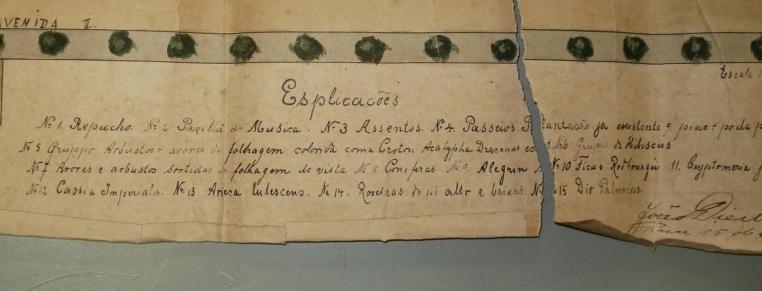 AVENIDA II.
Escala 1
Esplicacões
Nº 1. Repucho. Nº 2 Pavilhão de Musica. Nº 3 Assentos. Nº 4. Passeios Plantacão ja existente q. póde
Nº 5 Gruppo Arbustos e arvores de folhagem colorida como Croton, Acalypha Dracenas Nº 6 Grupo de Hibiscus
Nº 7 Avores e arbustos sortidas de folhagem de vista Nº 8 Coniferas Nº 9 Alegrin Nº 10 Ficus Roxburgii 11. Cryptomeria
Nº 12 Cassia Imperialis. Nº 13 Areca lutescens. Nº 14. Roseiras de pé alto e baixas Nº 15 Div Palmeiras.
João Dierb